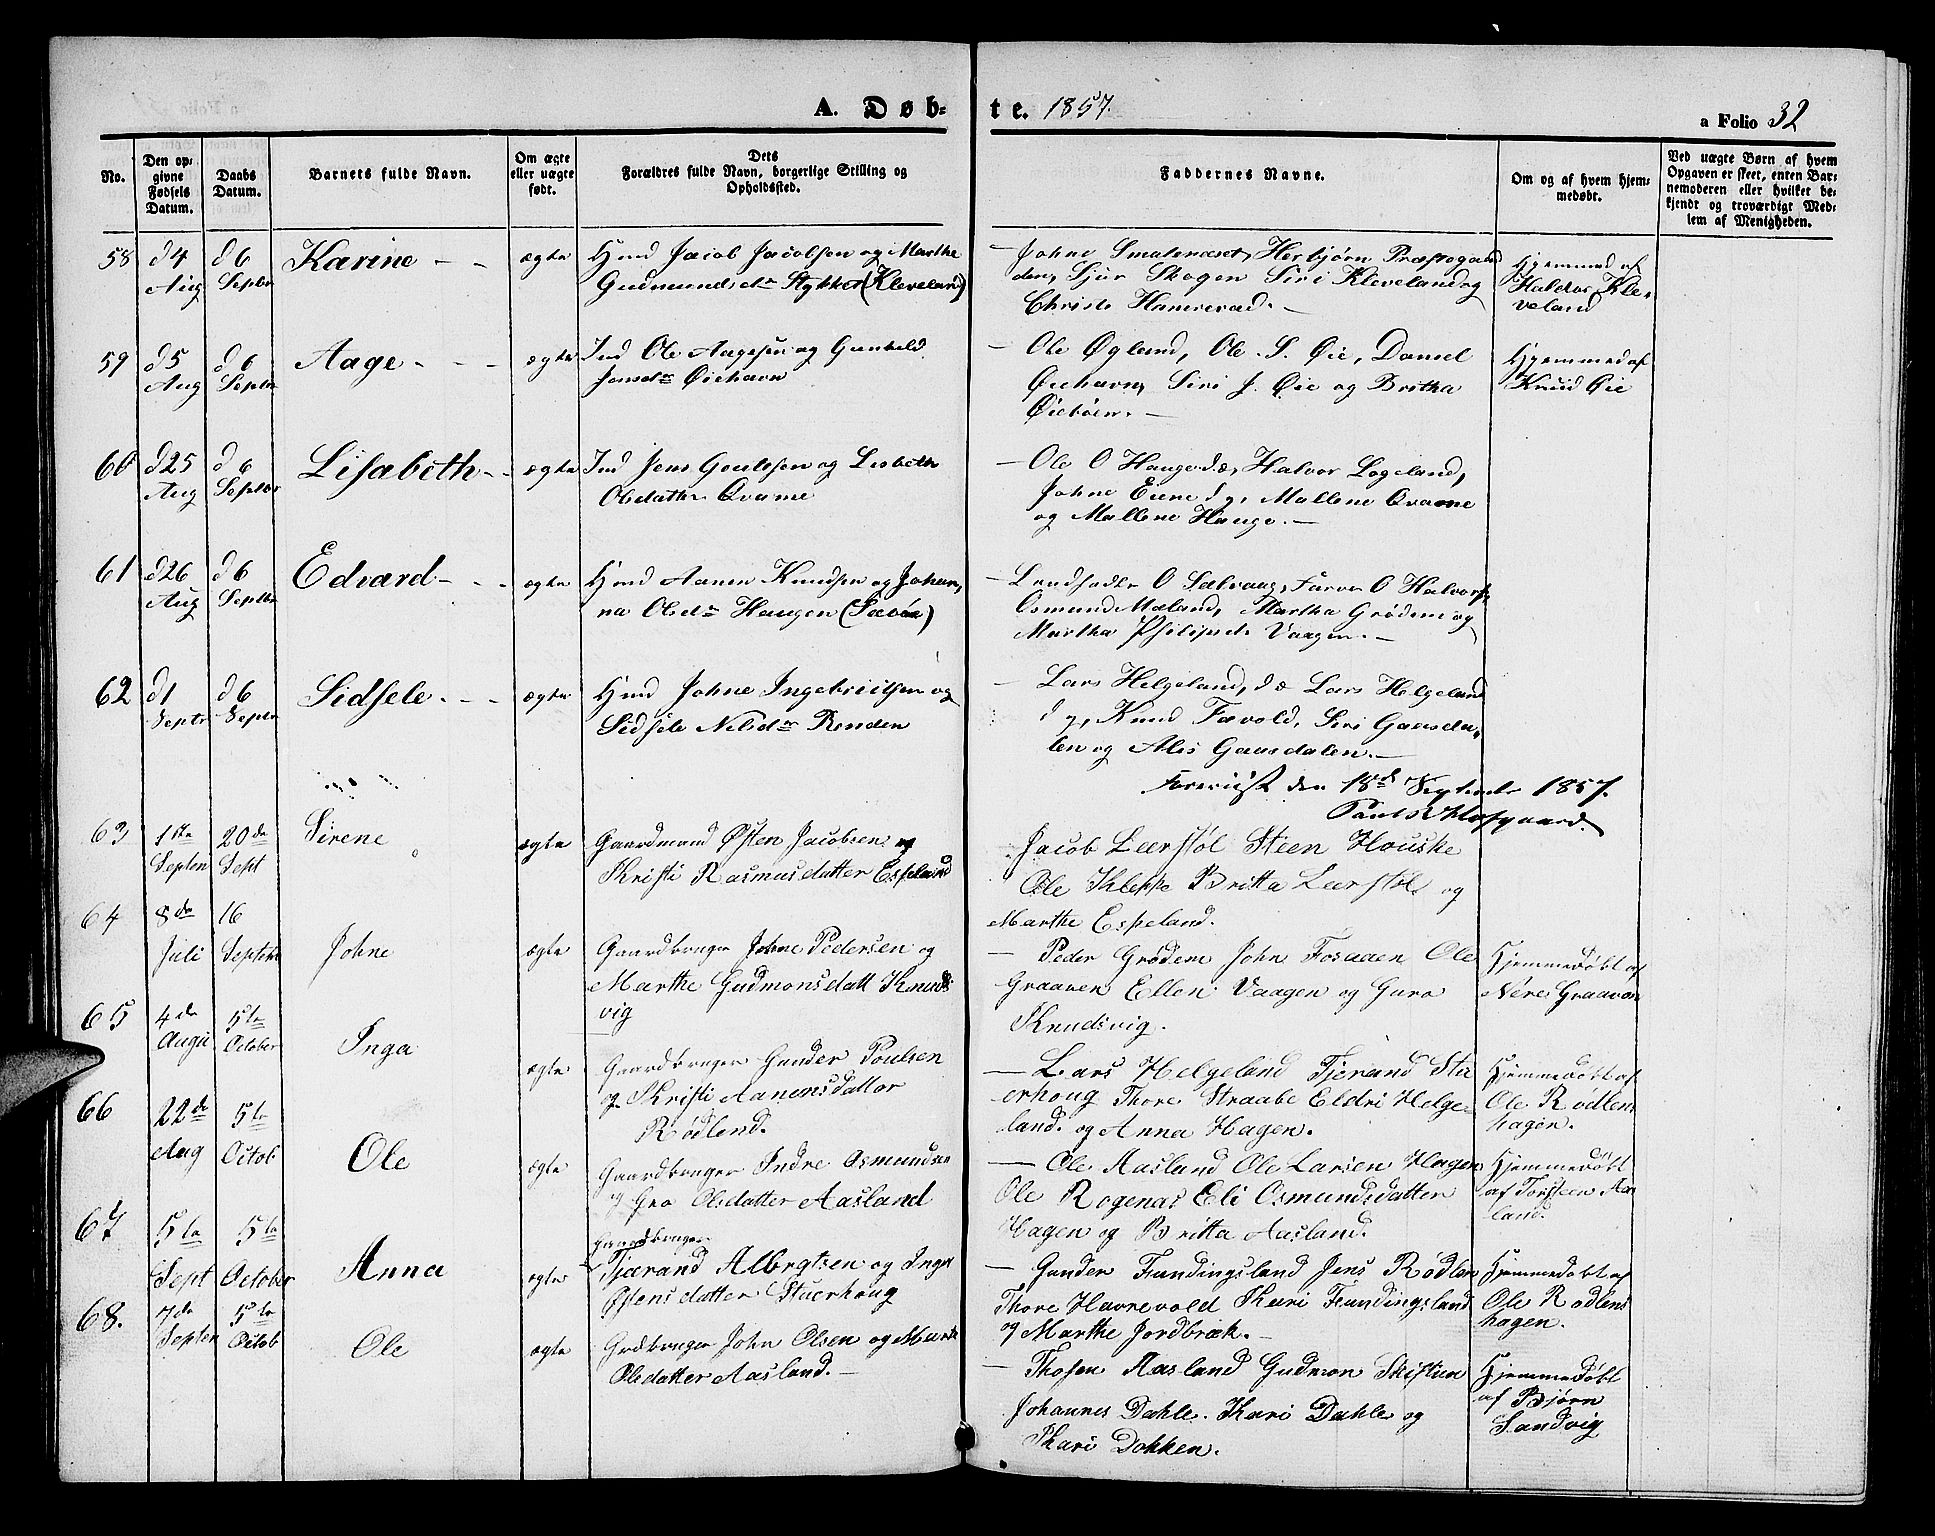 A. Døb-
te. 1857.
a Folio 32
No.
Den op-
givne
Fødsels
Datum.
Daabs
Datum.
Barnets fulde Navn.
Om ægte
eller uægte
født.
Dets
Forældres fulde Navn, borgerlige Stilling og
Opholdssted.
Faddernes Navne.
Om og af hvem hjem-
medøbt.
Ved uægte Børn af hvem
Opgaven er skeet, enten Bar-
nemoderen eller hvilket be-
kjendt og troværdigt Med-
lem af Menigheden.
58 d4 Aug d6 Septbr Karine - - ægte
Hmd Jacob Jacobsen og Marthe
Gudmundsdr Stykket (Kleveland)
Johne Smalenæset, Herbjørn
den, Sjur Skogen Siri Kleveland og
Christi
Hjemmed af
Haldor Kle-
veland
59 d5 Aug d6 Septbr Aage - - - ægte
Ind Ole Aagesen og Gunhild
Jensdr Øiehavn
Ole Øgland, Ole S. Øie, Daniel
Øiehavn, Siri J. Øie og Britha
Øiebøen. -
Hjemmed af
Knud Øie
60 d25 Aug d6 Septbr Lisabeth - - ægte
Ind Jens Goutesen og Lisbeth
Olsdatter Qvame
Ole O Hauge d.æ, Halvor Løgeland,
Johne Eiene d.y, Mallene Qvame
og Mallene Hauge. -
61 d26 Aug d6 Septbr Edvard - - - ægte
Hmd Aanen Knudsen og Johan-
na Olsdr Haugen (Sæbøe)
O Halvors.
Osmund Mæland, Martha Grødem og
Martha Philipsd. Vaagen. -
62 d1 Septr d6 Septbr Sidsele - - - ægte
Hmd Johne Ingebrictsen og
Sidsele Nilsdr Renden
Lars Helgeland, d.æ Lars Helgeland
d.y, Knud Favold, Siri Gaasda-
len og Alis Gaasdalen. -
Foreviist den 18de September 1857.
63 1ste Septen 20de Sept Sirene ægte
Gaardmand Østen Jacobsen og
Kristi Rasmusdatter Espeland
Jacob Leerstøl Steen Houske
Ole Kleppe Britta Leerstøl og
Marthe Espeland.
64 8de Juli 16 Septbr Johne ægte
Gaardbruger Johne Pedersen og
Marthe Gudmonsdatt Knuds
vig
- Peder Grødem John Fosaaen Ole
Graaven Ellen Vaagen og Guro
Knudsvig.
Hjemmedøbt af
Nere Graaven
65 4de Augu 5te October Inga ægte
Gaardbruger Gunder Poulsen
og Kristi Aanensdatter
Rødlend.
- Lars Helgeland Tjerand Stu
erhoug Thore Straabe Eldri Helge-
land. og Anna Hagen.
Hjemmedøbt af
Ole Rødlens
hagen.
66 22de Aug 5te Octob Ole ægte
Gaardbruger Indre Osmundsen
og Gro Olsdatter Aasland
- Ole Aasland Ole Larsen Hagen
Ole Rogenas Eli Osmundsdatter
Hagen og Britta Aasland.
Hjemmedøbt
af Torsteen Aas
land.
67 5te Sept 5te October Anna ægte
Gaardbruger
Tjærand Albregtsen og Inger
Østensdatter Stuerhoug
- Gunder Fundingsland Jens Rødlen
Thore Havrevold Kari Fundingsland
og Marthe Jordbræk. -
Hjemmedøbt af
Ole Rødlens
hagen.
68. 7de Septen 5te Octob Ole ægte
Grdbruger John Olsen og Marte
Olsdatter Aasland. -
- Aasland Gudmon
Johannes Dahle. Kari Dahle og
Kari Dokken.
Hjemmedøbt
af Bjørn
Sandvig